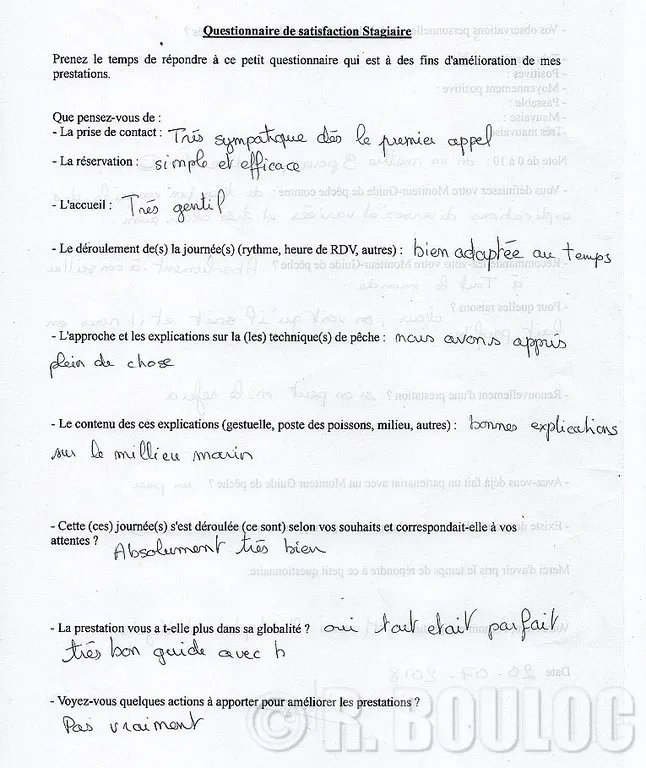 Questionnaire de satisfaction Stagiaire
Prenez le temps de répondre à ce petit questionnaire qui est à des fins d'amélioration de mes
prestations.
Que pensez-vous de :
- La prise de contact : Trés sympatique dés le premier appel
- La réservation : simple et efficace
- L'accueil : Trés gentil
- Le déroulement de(s) la journée(s) (rythme, heure de RDV, autres) : bien adaptée au temps
- L'approche et les explications sur la (les) technique(s) de pêche : nous avons appris
plein de chose
- Le contenu des ces explications (gestuelle, poste des poissons, milieu, autres) : bonnes explications
sur le millieu marin
- Cette (ces) journée(s) s'est déroulée (ce sont) selon vos souhaits et correspondait-elle à vos
attentes ? Absolument trés bien
- La prestation vous a t-elle plus dans sa globalité ? oui tout etait parfait
trés bon guide avec
- Voyez-vous quelques actions à apporter pour améliorer les prestations ?
Pas vraiment
© R. BOULOC